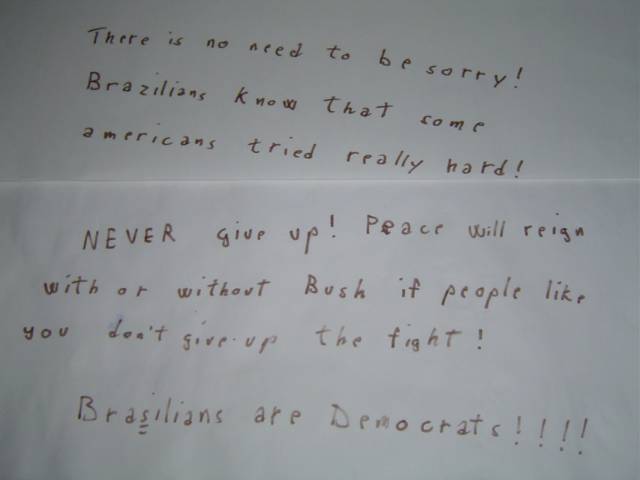 There is no need to be sorry!
Brazilians know that some
americans tried really hard!
NEVER give up! Peace will reign
with or without Bush if people like
you don't give up the fight!
Brasilians are Democrats!!!!